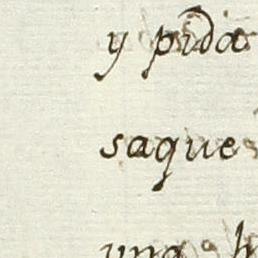 y pida
saque
una